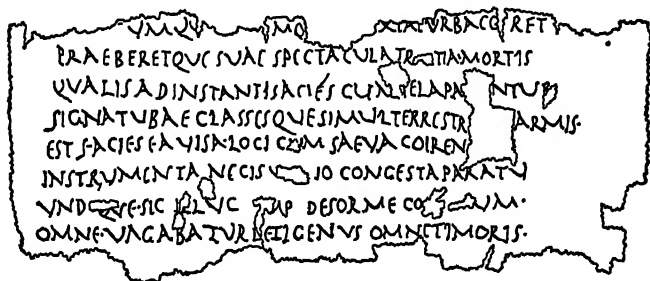 VMQV MO XTA TVRBA CO RET
PRAEBERETQVE SVAE SPECTACVLA TR TIA·MORTIS
QVALIS AD INSTANTIS ACIÉS CVM TELA PA NTVR
SIGNA TVBAE CLASSESQVE SIMVL TERRESTR ARMIS·
EST FACIES EA VISA·LOCI CVM SAEVA COIREN
INSTRVMENTA NECIS V IO CONGESTA PARATV
VND QVE·SIC ILLVC MP DEFORME CO VM·
OMNE·VAGABATVR LETI GENVS OMNE TIMORIS·